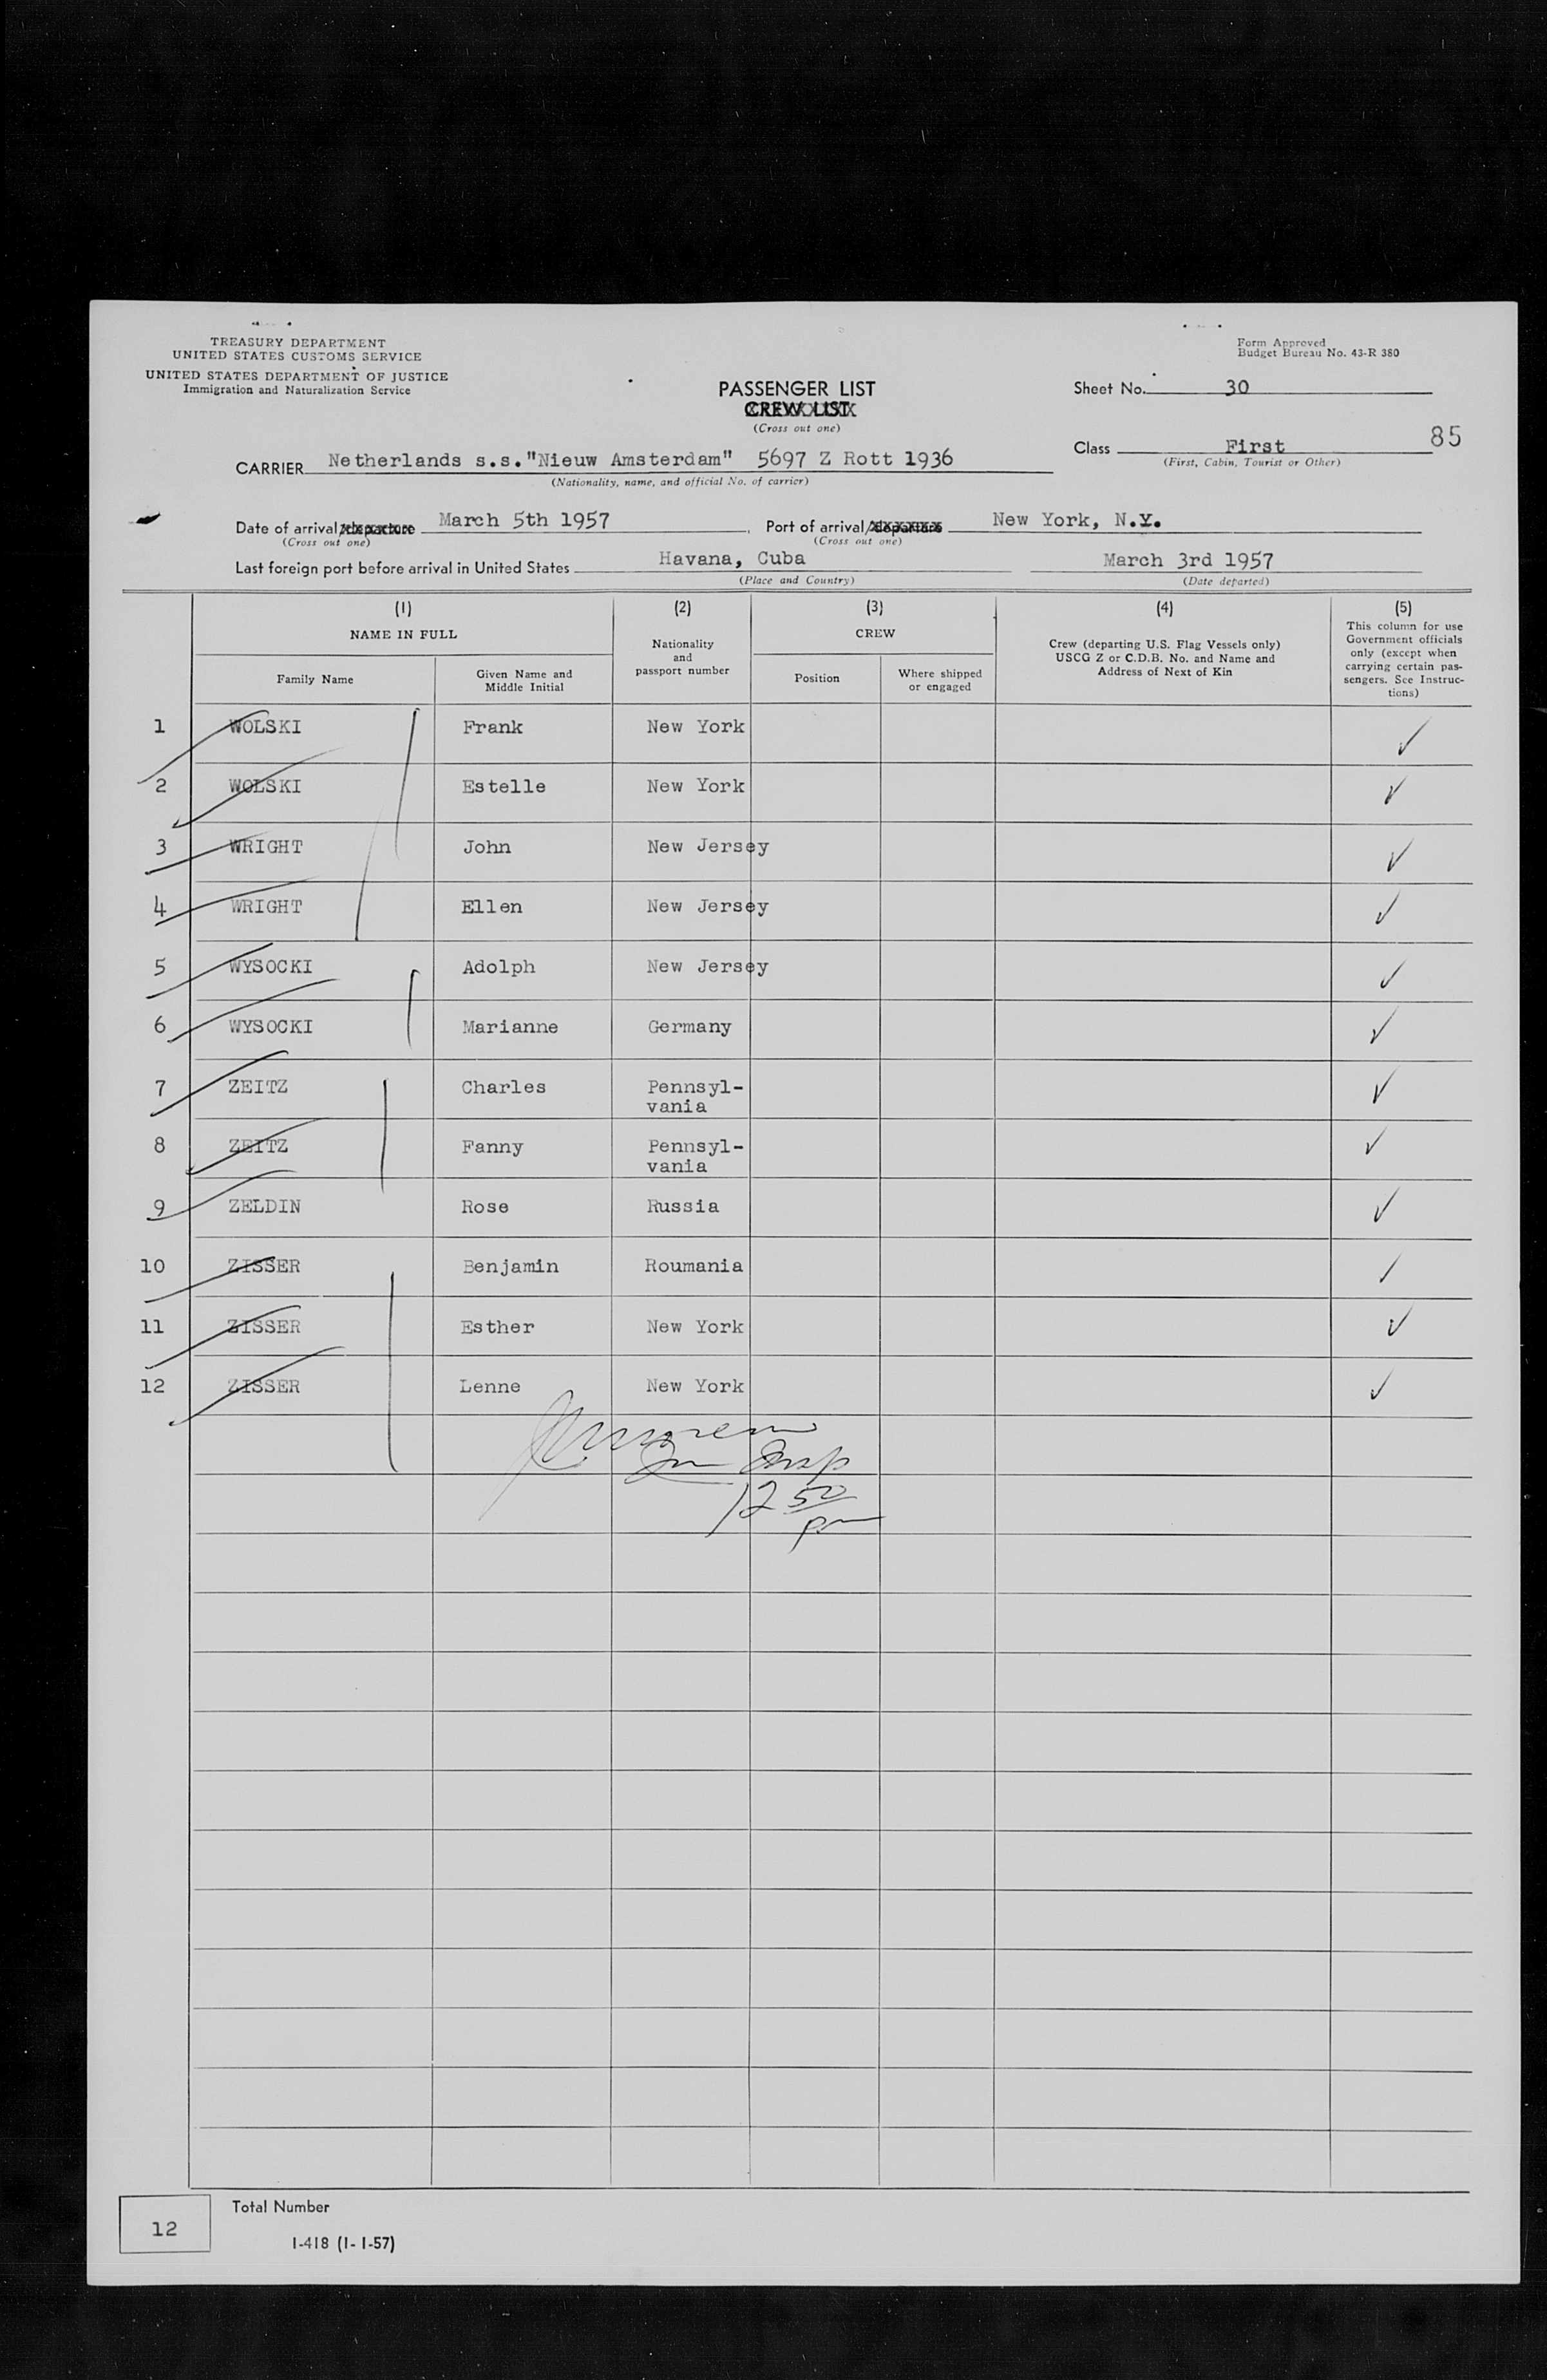 TREASURY DEPARTMENT
UNITED STATES CUSTOMS SERVICE
UNITED STATES DEPARTMENT OF JUSTICE
Immigration and Naturalization Service
Form Approved
Budget Bureau No. 43-R 380
PASSENGER LIST
CREW LIST
(Cross out one)
Sheet No. 30
Class First
85
(First, Cabin, Tourist or Other)
CARRIER Netherlands s.s."Nieuw Amsterdam" 5697 Z Rott 1936
(Nationality, name, and official No. of carrier)
Date of arrival/departure March 5th 1957 Port of arrival/departure New York, N.Y.
(Cross out one) (Cross out one)
Last foreign port before arrival in United States Havana, Cuba March 3rd 1957
(Place and Country) (Date departed)
(1) (2) (3) (4) (5)
NAME IN FULL
Family Name
Given Name and
Middle Initial
Nationality
and
passport number
CREW
Position
Where shipped
or engaged
Crew (departing U.S. Flag Vessels only)
USCG Z or C.D.B. No. and Name and
Address of Next of Kin
This column for use
Government officials
only (except when
carrying certain pas-
sengers. See Instruc-
tions)
1 WOLSKI Frank New York
2 WOLSKI Estelle New York
3 WRIGHT John New Jersey
4 WRIGHT Ellen New Jersey
5 WYSOCKI Adolph New Jersey
6 WYSOCKI Marianne Germany
7 ZEITZ Charles Pennsyl-
vania
8 ZEITZ Fanny Pennsyl-
vania
9 ZELDIN Rose Russia
10 ZISSER Benjamin Roumania
11 ZISSER Esther New York
12 ZISSER Lenne New York
Im Insp
12 50
pm
12
Total Number
I-418 (1-1-57)